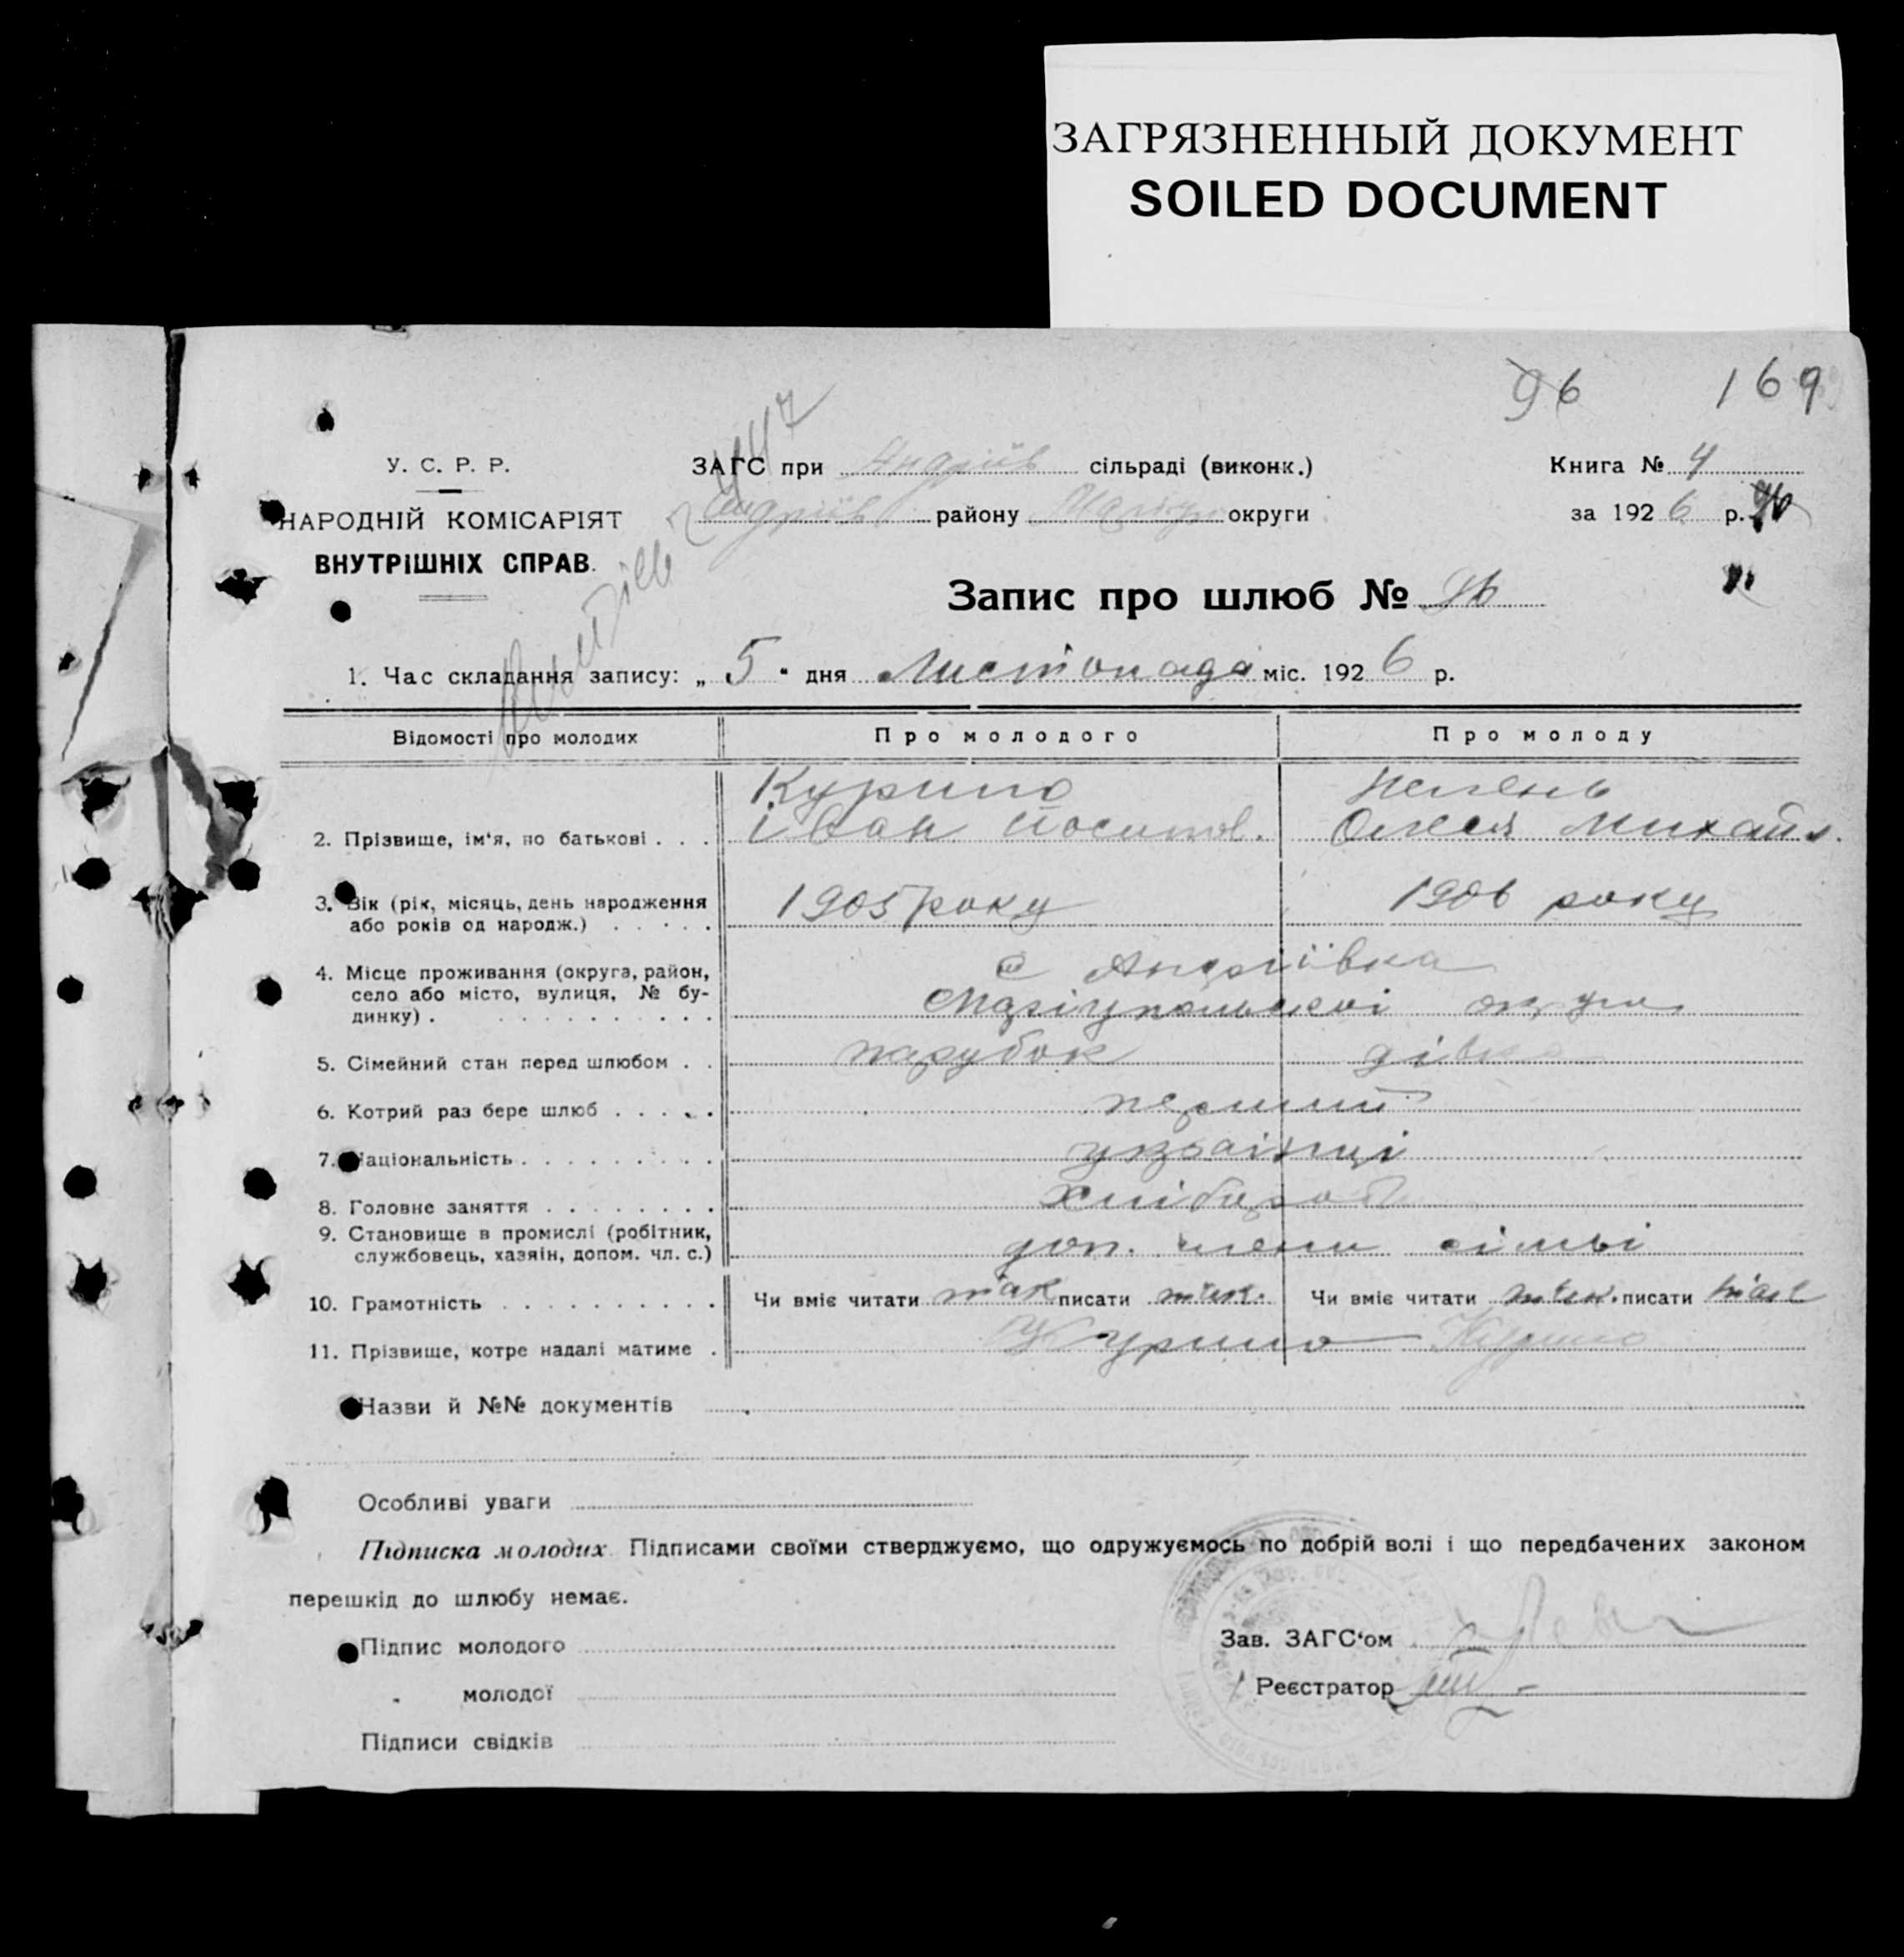 ЗАГРЯЗНЕННЫЙ ДОКУМЕНТ
SOILED DOCUMENT
96 169
У. С. Р. Р.
НАРОДНІЙ КОМІСАРІЯТ
ВНУТРІШНІХ СПРАВ.
ЗАГС при Андріїв сільраді (виконк.)
Андріїв району округи
Книга № 4
за 1926 р.
Запис про шлюб № 96
1. Час складання запису: „ 5 " дня Листопада міс. 1926 р.
Відомості про молодих Про молодого Про молоду
Курило
2. Прізвище, ім'я, по батькові . . . Іван Йосипов. Михайл.
3. Вік (рік, місяць, день народження
або років од народж.) . . . . . 1905 року 1906 року
4. Місце проживання (округа, район, с Андріївка
село або місто, вулиця, № бу-
динку) . . . . . . . . . . . Маріупольскої округи
5. Сімейний стан перед шлюбом . . парубок дівка
6. Котрий раз бере шлюб . . . . . перший
7. Національність . . . . . . . . . українці
8. Головне заняття . . . . . . . . хлібороб
9. Становище в промислі (робітник,
службовець, хазяін, допом. чл. с.) доп. члени сімьі
10. Грамотність . . . . . . . . . . Чи вміє читати так писати так. Чи вміє читати так. писати так
11. Прізвище, котре надалі матиме . Курило Курило
Назви й №№ документів
Особливі уваги
Підписка молодих Підписами своїми стверджуємо, що одружуємось по добрій волі і що передбачених законом
перешкід до шлюбу немає.
Підпис молодого
„ молодої
Підписи свідків
Зав. ЗАГС'ом
Реєстратор